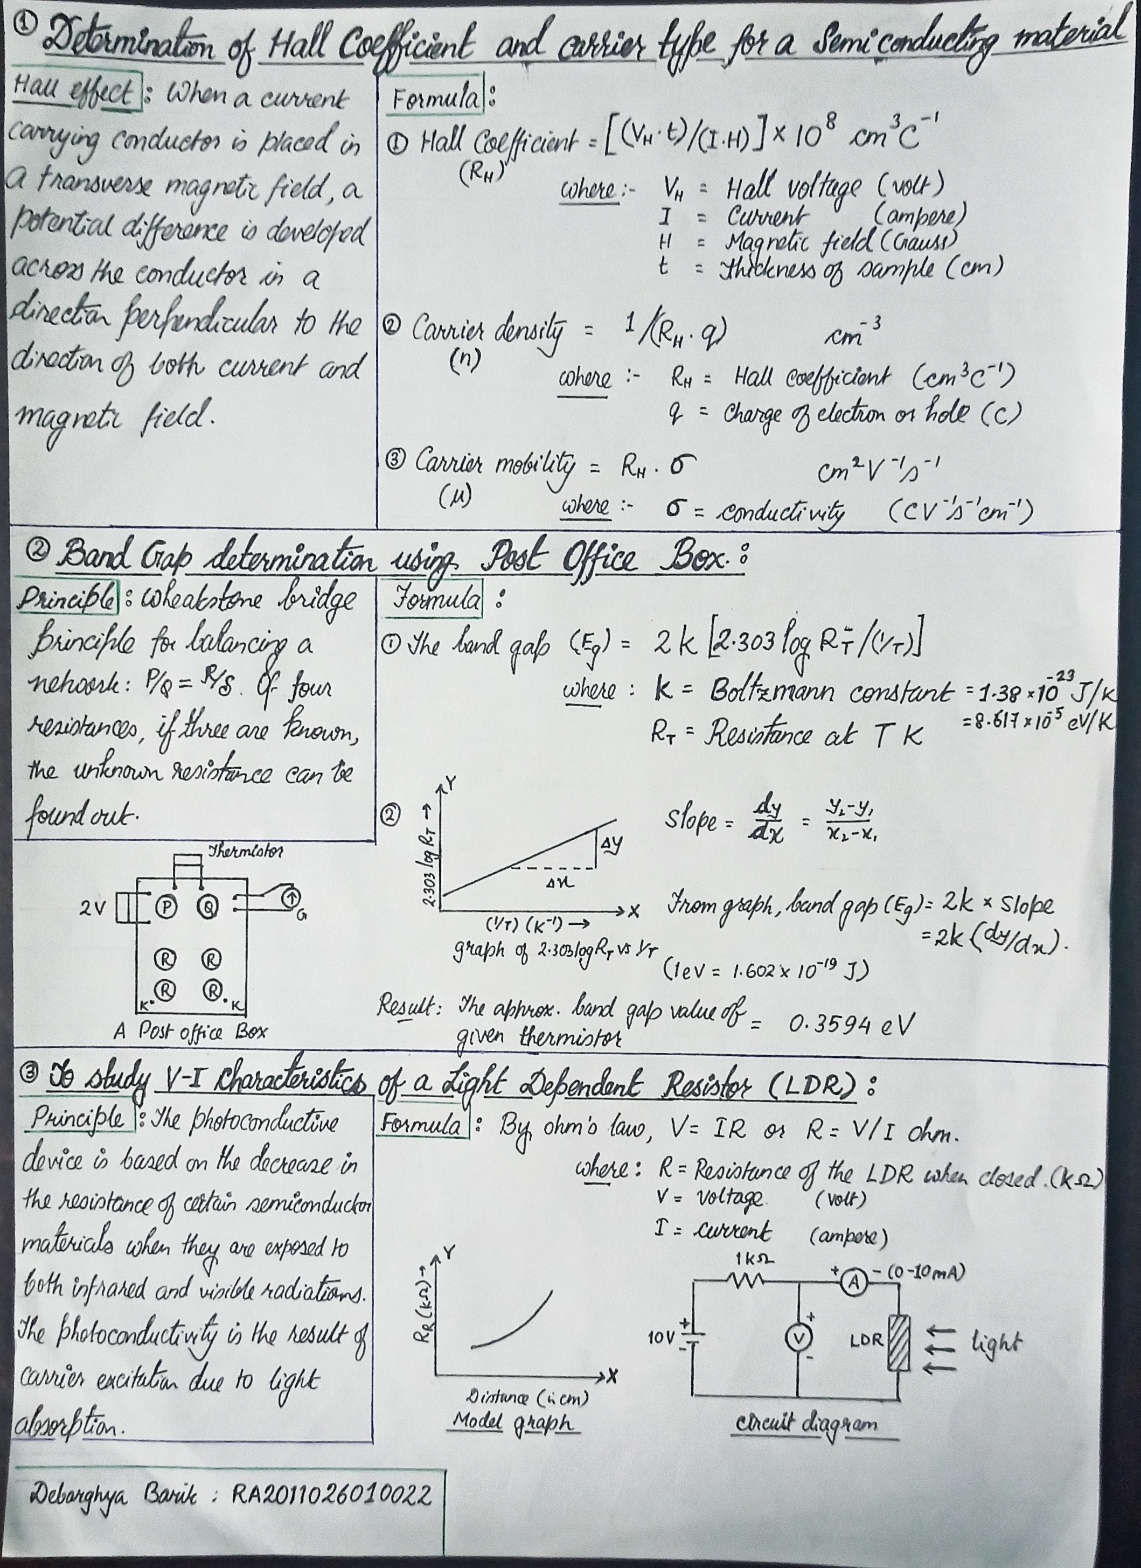 ① Determination of Hall Coefficient and carrier type for a Semiconducting material
Hall effect : When a current
carrying conductor is placed in
a transverse magnetic field, a
potential difference is developed
across the conductor in a
direction perpendicular to the
direction of both current and
magnetic field.
Formula :
① Hall Coefficient = [(V_H · t)/(I.H)] × 10⁸ cm³C⁻¹
(R_H)
where :- V_H = Hall voltage (volt)
I = Current (ampere)
H = Magnetic field (Gauss)
t = thickness of sample (cm)
② Carrier density = 1/(R_H . q) cm⁻³
(n)
where :- R_H = Hall coefficient (cm³C⁻¹)
q = charge of electron or hole (C)
③ Carrier mobility = R_H . σ cm²V⁻¹s⁻¹
(μ)
where :- σ = conductivity (CV⁻¹s⁻¹cm⁻¹)
② Band Gap determination using Post Office Box. :
Principle : Wheatstone bridge
principle for balancing a
network: P/Q = R/S. If four
resistances, if three are known,
the unknown resistance can be
found out.
Thermistor
2V P Q G
R R
R R
K K
A Post office Box
Formula :
① The band gap (Eg) = 2k [2.303 log R_T/(1/T)]
where : K = Boltzmann constant = 1.38 × 10⁻²³ J/K
= 8.617 × 10⁻⁵ eV/K
R_T = Resistance at T K
②
Y
2.303 log R_T →
Δy
Δx
X
(1/T) (K⁻¹) →
graph of 2.303 log R_T vs 1/T
slope = dy/dx = y₂-y₁/x₂-x₁
From graph, band gap (Eg) = 2k × slope
= 2k (dy/dx).
(1eV = 1.602 × 10⁻¹⁹ J)
Result: The approx. band gap value of = 0.3594 eV
given thermistor
③ To study V-I Characteristics of a Light Dependent Resistor (LDR) :
Principle : The photoconductive
device is based on the decrease in
the resistance of certain semiconductor
materials when they are exposed to
both infrared and visible radiations.
The photoconductivity is the result of
carrier excitation due to light
absorption.
Formula : By ohm's law, V = IR or R = V/I ohm.
where : R = Resistance of the LDR when closed. (kΩ)
V = voltage (volt)
I = current (ampere)
Y
R_R (kΩ) →
X
Distance (in cm)
Model graph
1kΩ
+ A - (0-10mA)
10V + -
+ V -
LDR
light
circuit diagram
Debarghya Barik : RA2011026010022